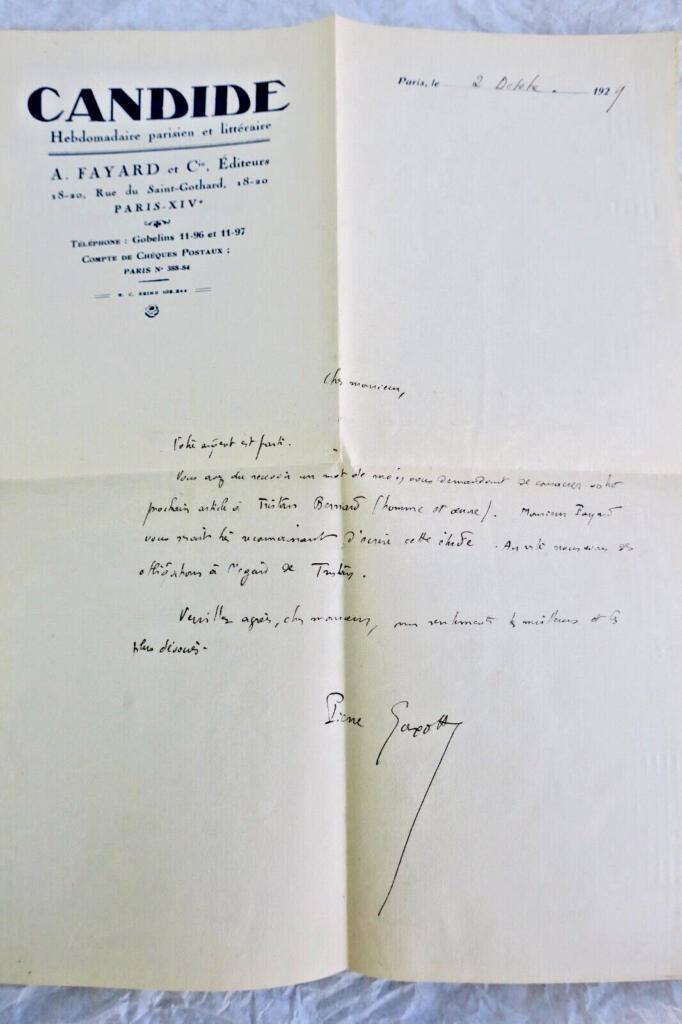 CANDIDE
Hebdomadaire parisien et littéraire
A. FAYARD et Cie, Éditeurs
18-20, Rue du Saint-Gothard, 18-20
PARIS-XIVe
TÉLÉPHONE : Gobelins 11-96 et 11-97
COMPTE DE CHÈQUES POSTAUX :
PARIS No 388-84
R. C. SEINE
Paris, le 2 Octobre 1929
Cher monsieur,
Votre argent est parti.
Vous avez du recevoir un mot de moi, vous demandant de consacrer votre
prochain article à Tristan Bernard (homme et œuvre). Monsieur Fayard
vous serait très reconnaissant d'écrire cette étude. nous avons des
obligations à l'égard de Tristan.
Veuillez agréer, cher monsieur, mes sentiments les meilleurs et les
plus dévoués.
Pierre Gaxotte